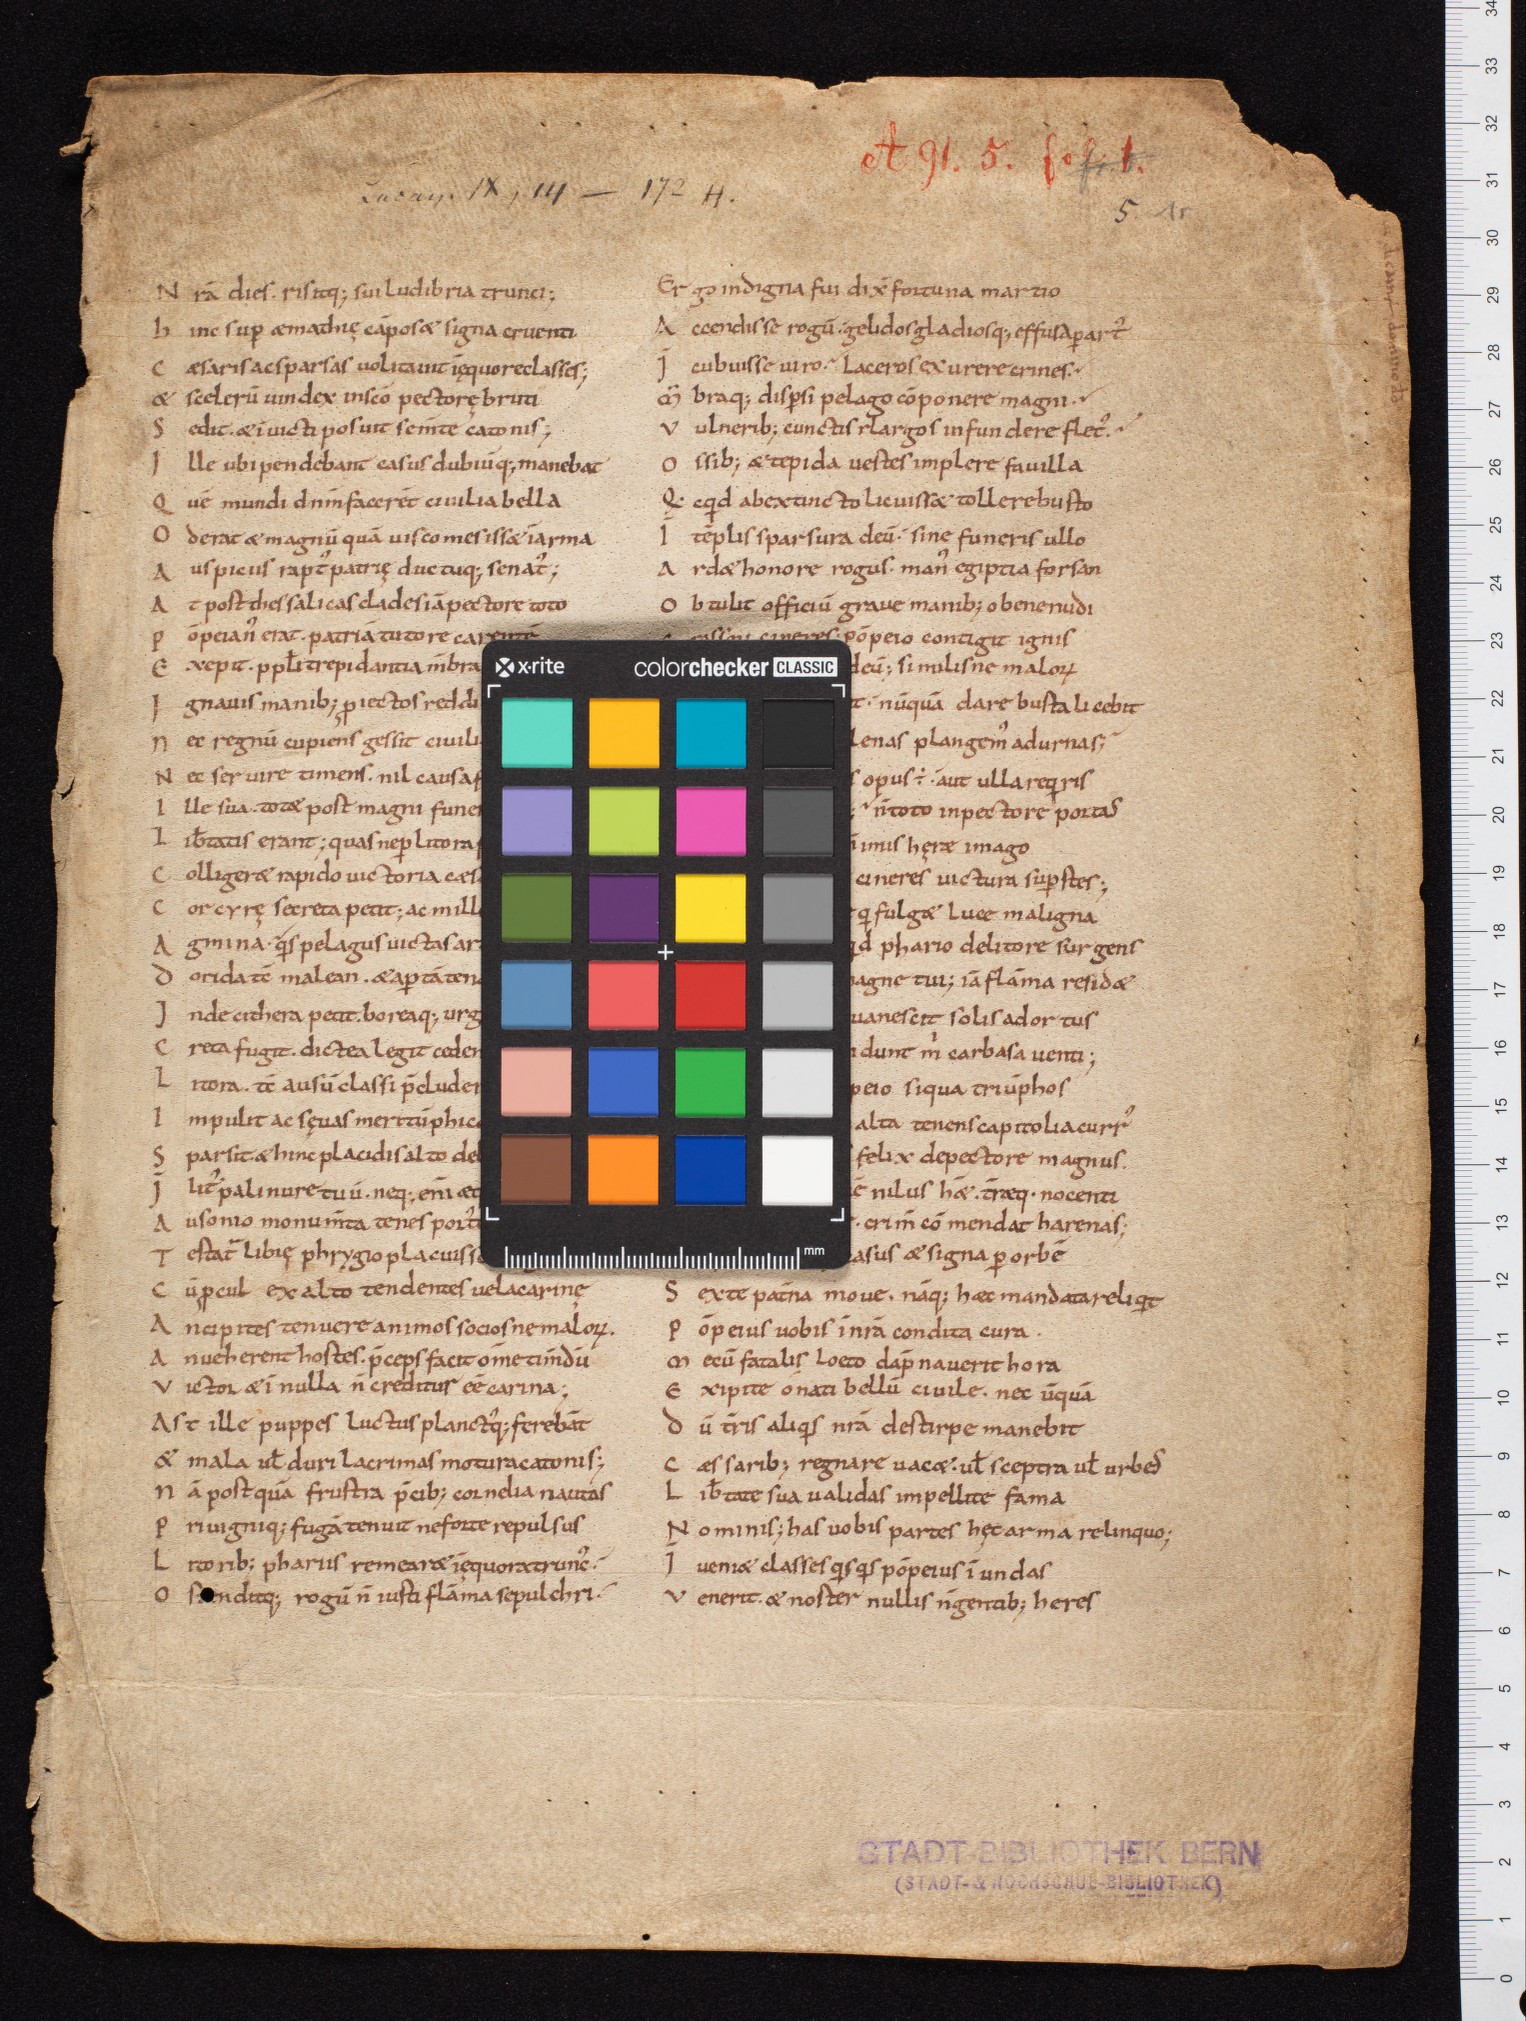 A 91. 5. fol. 1.
Lucan. IX, 14 — 172 H.
5 1r
N rā dies. risitq; sui ludibria trunci;
h inc sup æmathię cāpos & signa cruenti
C æsaris ac sparsas volitauit ięquore classes;
& scelerū uindex insc̄o pectore bruti
S edit. & īuicti posuit sc̄m̄te catonis;
J lle ubi pendebant casus dubiūq; manebat
Q uē mundi dn̄m̄ facerēt ciuilia bella
O derat & magnū quā uis comes iss& īarma
A uspiciis rapt᷒ patrię ductuq; senat᷒;
A t post thessalicas clades iā pectore toto
P ōpeian᷒ erat. patriā tutore carentē
E xcepit. ppl̄i trepidantia m̄bra
J gnauis manib; ꝓiectos reddi
N ec regnū cupiens gessit ciuili
N ec seruire timens. nil causa f
I lle sua. tot& post magni funer
L ib̄tatis erant; quas ne ꝑ litora
C olliger& rapido uictoria cæs
C orcyrę secreta petit; ac mill
A gmina. q̄s pelagus uictas ar
D orida tē malean. & aptā ten
J nde cithera petit. boreaq; urg
C reta fugit. dictea legit ceden
L itora. tē ausū classi p̄cluder
I mpulit ac sęuas meritū phic
S parsit & hinc placidis alto del
J lit᷒ palinure tuū. neq; enī æ
A usonio monum̄ta tenes port
T estat᷒ libię phrygio placuiss
C ū ꝓcul ex alto tendentes uela carinę
A ncipites tenuere animos socios ne maloꝝ.
A nueherent hostes. p̄ceps facit om̄e timdū
V ictor & ī nulla n̄ creditus eē carina;
Ast ille puppes luctus planct᷒q; ferebāt
& mala ul̄ duri lacrimas motura catonis;
N ā postquā frustra p̄cib; cornelia nautas
P riuigniq; fugā tenuit ne forte repulsus
L itorib; phariis remear& ięquora trunc᷒.
O stenditq; rogū n̄ iusti flāma sepulchri.
Ergo indigna fui dix̄ fortuna marito
A ccendisse rogū. gelidos gladiosq; effusa ꝑ art᷒
J cubuisse uiro. Laceros exurere crines.
M̄ braq; disp̄si pelago cōponere magni.
V ulnerib; cunctis largos infundere flet᷒.
O ssib; & tepida uestes implere fauilla
Q cqd abextincto licuiss& tollere busto
Ī tēplis sparsura deū. sine funeris ullo
A rd& honore rogus. man᷒ egiptia forsan
O btulit officiū graue manib; o bene nudi
crassou cineres. pōpeio contigit ignis
deū; similisne maloꝝ
t. nūquā dare busta licebit
lenas plangem᷒ adurnas;
opus ÷. aut ulla reqris
n̄ toto inpectore portas
imis hęr& imago
cineres uictura sup̄stes;
q̄ fulg& luce maligna
qd phario delitore surgens
magne tui; iā flāma resid&
uanescit solis ad ortus
dunt m̄ carbasa uenti;
peio siqua triūphos
alta tenens capitolia curr᷒
felix depectore magnus.
nilus h&. trǣq. nocenti
crim̄ cō mendat harenas;
casus & signa ꝑ orbē
S exte patr̄na moue. nāq; hæc mandata reliqt
P ōpeius uobis īnr̄ā condita cura.
M ecū fatalis loeto dāpnauerit hora
E xipite ō nati bellū ciuile. nec ūquā
D ū tr̄is aliqs nr̄ā destirpe manebit
C æssarib; regnare uac&. ul̄ sceptra ul̄ urbes
L ib̄tate sua ualidas impellite fama
N ominis; has uobis partes hęc arma relinquo;
Ī ueni& classes qsqs pōpeius ī undas
V enerit. & noster nullis n̄ gentib; heres
x·rite
colorchecker CLASSIC
mm
STADT-BIBLIOTHEK BERN
(STADT- & HOCHSCHUL-BIBLIOTHEK)
34
33
32
31
30
29
28
27
26
25
24
23
22
21
20
19
18
17
16
15
14
13
12
11
10
9
8
7
6
5
4
3
2
1
0